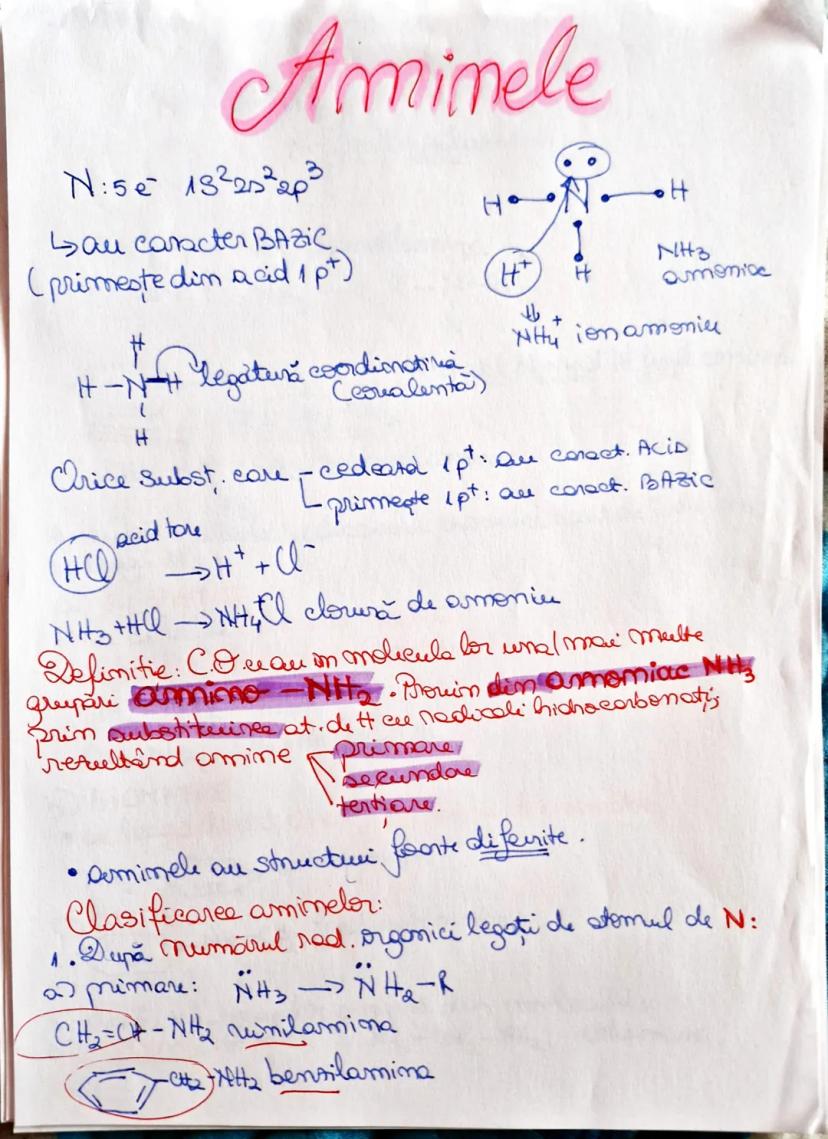 Aminele
N: 5e⁻ 1s²2s²2p³
H N H
↳ au caracter BAZIC
(primește din acid 1p⁺)
H⁺ H
NH₃
amoniac
⇓
NH₄⁺ ion amoniu
H
H – N – H legătură coordinativă
(covalentă)
H
Orice subst. care – cedează 1p⁺: au caract. ACID
primește 1p⁺: au caract. BAZIC
acid tare
HCl → H⁺ + Cl⁻
NH₃ + HCl → NH₄⁺Cl clorură de amoniu
Definitie: C.O ce au în molecula lor una/mai multe
grupări amino –NH₂. Provin din amoniac NH₃
prin substituirea at. de H cu radicali hidrocarbonați,
rezultând amine primare
secundare
terțiare.
• aminele au structuri foarte diferite.
Clasificarea aminelor:
1. După numărul rad. organici legați de atomul de N:
a) primare: N̈H₃ → N̈H₂–R
CH₂=CH – NH₂ vinilamina
CH₂–NH₂ benzilamina